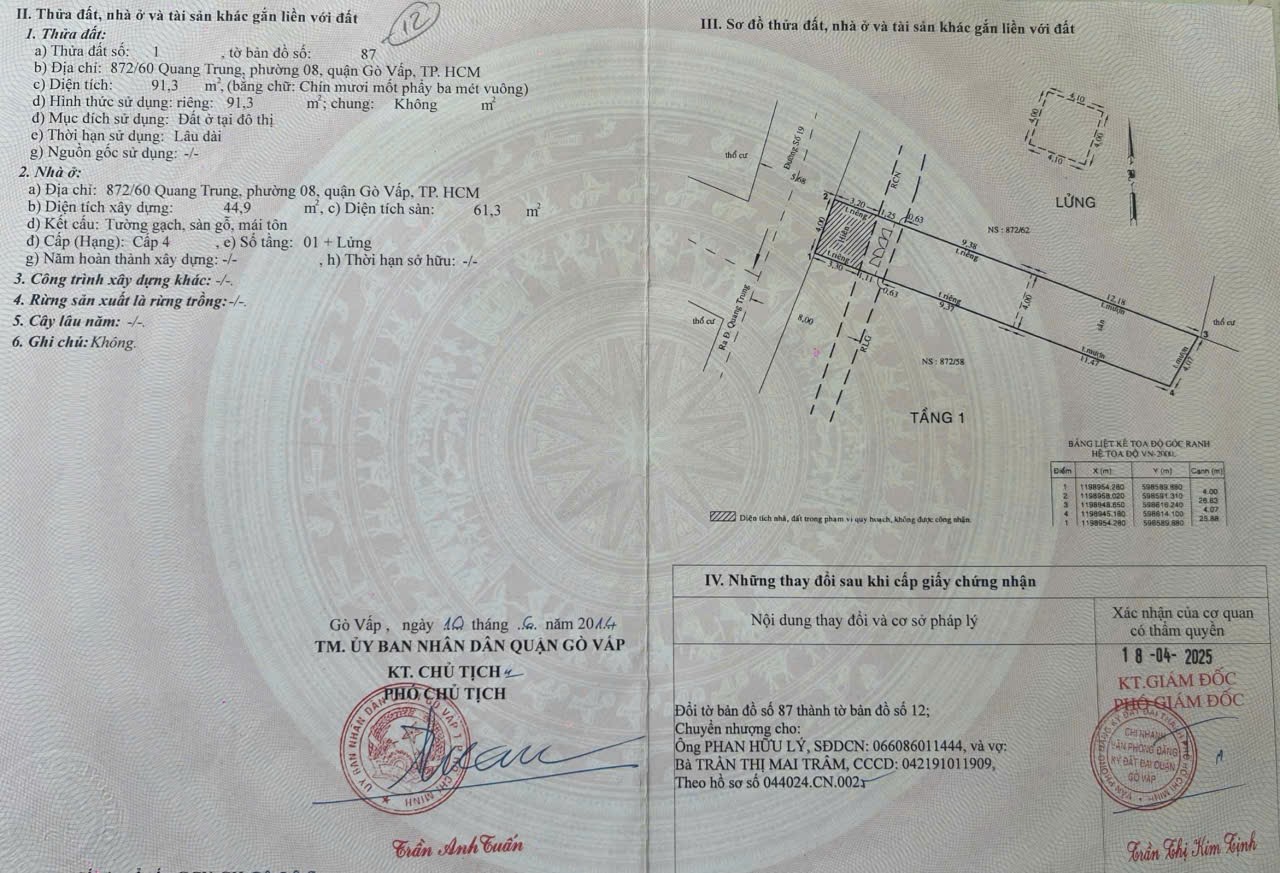 II. Thửa đất, nhà ở và tài sản khác gắn liền với đất
12
1. Thửa đất:
a) Thửa đất số: 1 , tờ bản đồ số: 87
b) Địa chỉ: 872/60 Quang Trung, phường 08, quận Gò Vấp, TP. HCM
c) Diện tích: 91,3 m², (bằng chữ: Chín mươi mốt phẩy ba mét vuông)
d) Hình thức sử dụng: riêng: 91,3 m²; chung: Không m²
đ) Mục đích sử dụng: Đất ở tại đô thị
e) Thời hạn sử dụng: Lâu dài
g) Nguồn gốc sử dụng: -/-
2. Nhà ở:
a) Địa chỉ: 872/60 Quang Trung, phường 08, quận Gò Vấp, TP. HCM
b) Diện tích xây dựng: 44,9 m², c) Diện tích sàn: 61,3 m²
d) Kết cấu: Tường gạch, sàn gỗ, mái tôn
đ) Cấp (Hạng): Cấp 4 , e) Số tầng: 01 + Lửng
g) Năm hoàn thành xây dựng: -/- , h) Thời hạn sở hữu: -/-
3. Công trình xây dựng khác: -/-.
4. Rừng sản xuất là rừng trồng: -/-.
5. Cây lâu năm: -/-.
6. Ghi chú: Không.
Gò Vấp , ngày 10 tháng .6. năm 2014
TM. ỦY BAN NHÂN DÂN QUẬN GÒ VẤP
KT. CHỦ TỊCH
PHÓ CHỦ TỊCH
Trần Anh Tuấn
III. Sơ đồ thửa đất, nhà ở và tài sản khác gắn liền với đất
4,10
4,00
4,00
4,10
LỬNG
thổ cư
Đường Số 19
5,68
RCN
2
3,20
t.riêng
1,25
0,63
4,00
Hiên
t.riêng
1
3,30
1,11
0,63
NS : 872/62
9,38
t.riêng
12,18
t.mượn
t.riêng
9,37
4,00
sân
3
thổ cư
t.mượn
4,07
t.mượn
11,47
4
thổ cư
Ra Đ. Quang Trung
8,00
RLG
NS : 872/58
TẦNG 1
BẢNG LIỆT KÊ TỌA ĐỘ GÓC RANH
HỆ TỌA ĐỘ VN-2000.
Điểm X (m) Y (m) Cạnh (m)
1 1198954.260 598589.880
4.00
2 1198958.020 598591.310
26.63
3 1198948.650 598616.240
4.07
4 1198945.180 598614.100
25.88
1 1198954.260 598589.880
Diện tích nhà, đất trong phạm vi quy hoạch, không được công nhận.
IV. Những thay đổi sau khi cấp giấy chứng nhận
Nội dung thay đổi và cơ sở pháp lý
Xác nhận của cơ quan
có thẩm quyền
Đổi tờ bản đồ số 87 thành tờ bản đồ số 12;
Chuyển nhượng cho:
Ông PHAN HỮU LÝ, SĐDCN: 066086011444, và vợ:
Bà TRẦN THỊ MAI TRÂM, CCCD: 042191011909,
Theo hồ sơ số 044024.CN.002
18 -04- 2025
KT.GIÁM ĐỐC
PHÓ GIÁM ĐỐC
CHI NHÁNH
VĂN PHÒNG ĐĂNG
KÝ ĐẤT ĐAI QUẬN
GÒ VẤP
Trần Thị Kim Tịnh